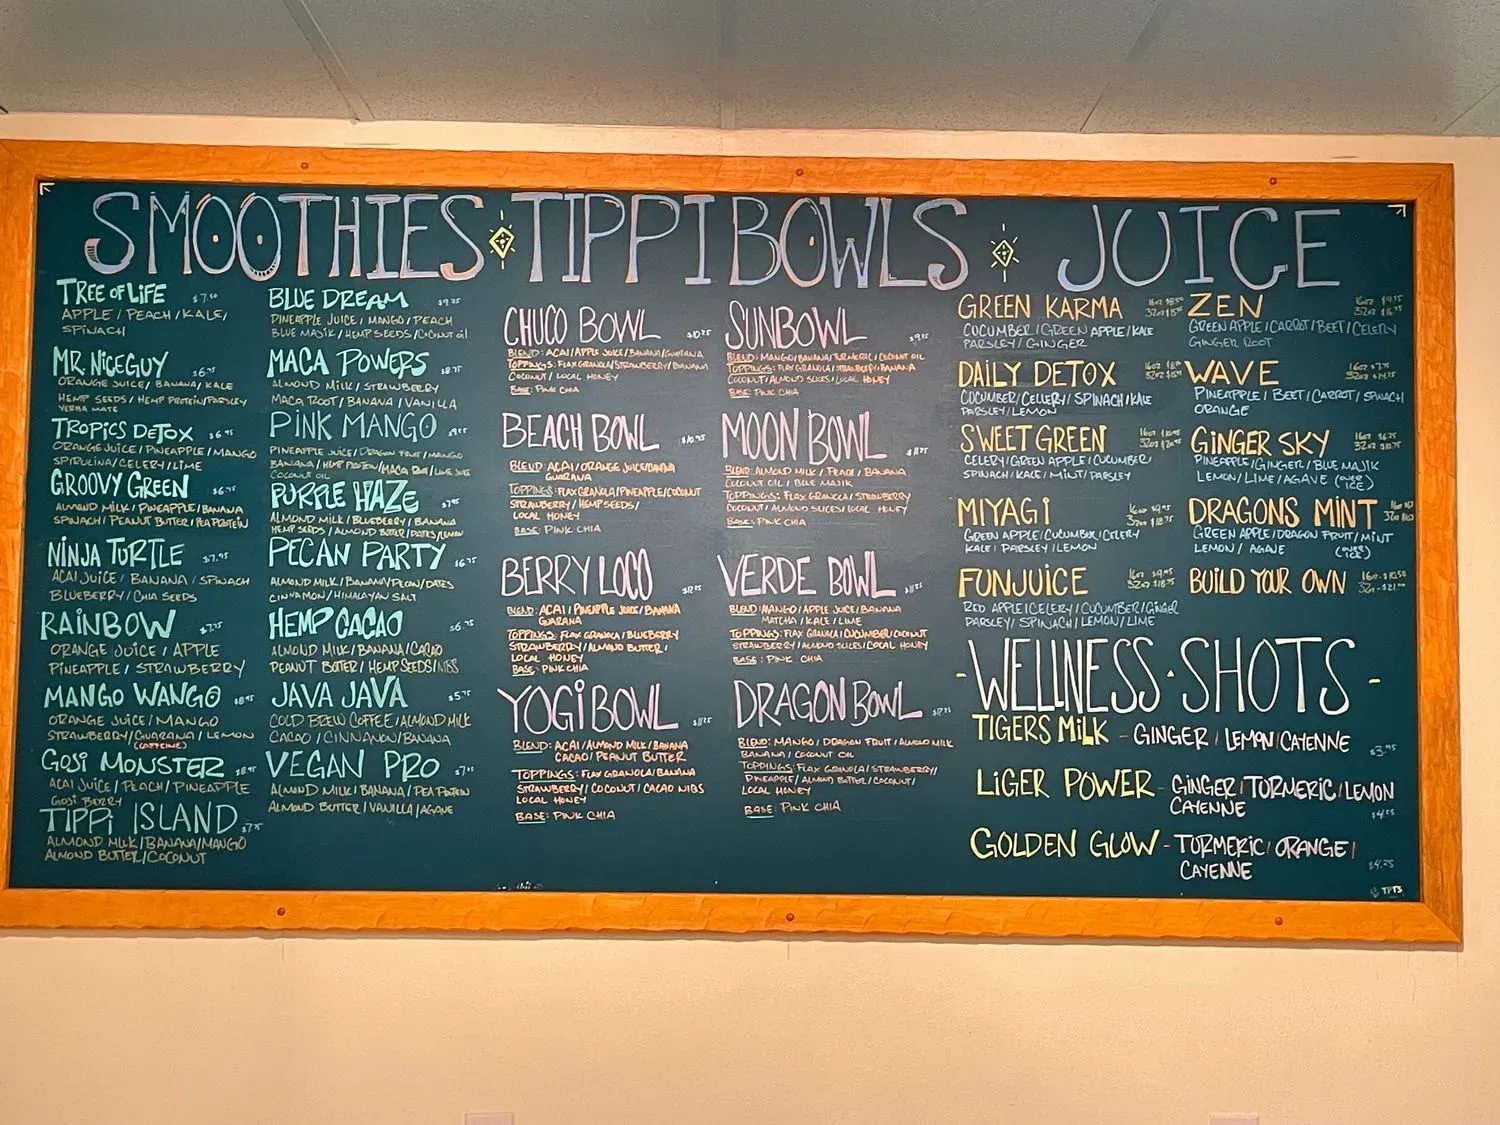 SMOOTHIES TIPPI BOWLS JUICE
TREE OF LIFE $7.50
APPLE / PEACH / KALE /
SPINACH
MR. NICEGUY
ORANGE JUICE / BANANA / KALE
HEMP SEEDS / HEMP PROTEIN / PARSLEY
YERBA MATE
TROPICS DETOX
ORANGE JUICE / PINEAPPLE / MANGO
SPIRULINA / CELERY / LIME
GROOVY GREEN
ALMOND MILK / PINEAPPLE / BANANA
SPINACH / PEANUT BUTTER / PEA PROTEIN
NINJA TURTLE $7.95
ACAI JUICE / BANANA / SPINACH
BLUEBERRY / CHIA SEEDS
RAINBOW
ORANGE JUICE / APPLE
PINEAPPLE / STRAWBERRY
MANGO WANGO $8.95
ORANGE JUICE / MANGO
STRAWBERRY / GUARANA / LEMON
(CAFFEINE)
GOJI MONSTER $8.95
ACAI JUICE / PEACH / PINEAPPLE
GOJI BERRY
TIPPI ISLAND
ALMOND MILK / BANANA / MANGO
ALMOND BUTTER / COCONUT
BLUE DREAM $9.25
PINEAPPLE JUICE / MANGO / PEACH
BLUE MAJIK / HEMP SEEDS / COCONUT OIL
MACA POWERS $8.75
ALMOND MILK / STRAWBERRY
MACA ROOT / BANANA / VANILLA
PINK MANGO
PINEAPPLE JUICE / DRAGON FRUIT / MANGO
BANANA / HEMP PROTEIN / MACA ROOT / LIME JUICE
COCONUT OIL
PURPLE HAZE
ALMOND MILK / BLUEBERRY / BANANA
HEMP SEEDS / ALMOND BUTTER / DATES / LEMON
PECAN PARTY $6.75
ALMOND MILK / BANANA / PECAN / DATES
CINNAMON / HIMALAYAN SALT
HEMP CACAO $6.75
ALMOND MILK / BANANA / CACAO
PEANUT BUTTER / HEMP SEEDS / NIBS
JAVA JAVA $5.75
COLD BREW COFFEE / ALMOND MILK
CACAO / CINNAMON / BANANA
VEGAN PRO
ALMOND MILK / BANANA / PEA PROTEIN
ALMOND BUTTER / VANILLA / AGAVE
CHUCO BOWL
BLEND: ACAI / APPLE JUICE / BANANA / GUARANA
TOPPINGS: FLAX GRANOLA / STRAWBERRY / BANANA
COCONUT / LOCAL HONEY
BASE: PINK CHIA
BEACH BOWL $10.95
BLEND: ACAI / ORANGE JUICE / BANANA
GUARANA
TOPPINGS: FLAX GRANOLA / PINEAPPLE / COCONUT
STRAWBERRY / HEMP SEEDS /
LOCAL HONEY
BASE: PINK CHIA
BERRY LOCO
BLEND: ACAI / PINEAPPLE JUICE / BANANA
GUARANA
TOPPINGS: FLAX GRANOLA / BLUEBERRY
STRAWBERRY / ALMOND BUTTER /
LOCAL HONEY
BASE: PINK CHIA
YOGI BOWL
BLEND: ACAI / ALMOND MILK / BANANA
CACAO / PEANUT BUTTER
TOPPINGS: FLAX GRANOLA / BANANA
STRAWBERRY / COCONUT / CACAO NIBS
LOCAL HONEY
BASE: PINK CHIA
SUNBOWL
BLEND: MANGO / BANANA / TURMERIC / COCONUT OIL
TOPPINGS: FLAX GRANOLA / STRAWBERRY / BANANA
COCONUT / ALMOND SLICES / LOCAL HONEY
BASE: PINK CHIA
MOON BOWL
BLEND: ALMOND MILK / PEACH / BANANA
COCONUT OIL / BLUE MAJIK
TOPPINGS: FLAX GRANOLA / STRAWBERRY
COCONUT / ALMOND SLICES / LOCAL HONEY
BASE: PINK CHIA
VERDE BOWL
BLEND: MANGO / APPLE JUICE / BANANA
MATCHA / KALE / LIME
TOPPINGS: FLAX GRANOLA / CUCUMBER / COCONUT
STRAWBERRY / ALMOND SLICES / LOCAL HONEY
BASE: PINK CHIA
DRAGON BOWL
BLEND: MANGO / DRAGON FRUIT / ALMOND MILK
BANANA / COCONUT OIL
TOPPINGS: FLAX GRANOLA / STRAWBERRY /
PINEAPPLE / ALMOND BUTTER / COCONUT /
LOCAL HONEY
BASE: PINK CHIA
GREEN KARMA
CUCUMBER / GREEN APPLE / KALE
PARSLEY / GINGER
DAILY DETOX
CUCUMBER / CELERY / SPINACH / KALE
PARSLEY / LEMON
SWEET GREEN
CELERY / GREEN APPLE / CUCUMBER /
SPINACH / KALE / MINT / PARSLEY
MIYAGI
GREEN APPLE / CUCUMBER / CELERY
KALE / PARSLEY / LEMON
FUNJUICE 16oz $9.95
32oz $18.75
RED APPLE / CELERY / CUCUMBER / GINGER
PARSLEY / SPINACH / LEMON / LIME
ZEN
GREEN APPLE / CARROT / BEET / CELERY
GINGER ROOT
WAVE 16oz $7.75
32oz $14.75
PINEAPPLE / BEET / CARROT / SPINACH
ORANGE
GINGER SKY
PINEAPPLE / GINGER / BLUE MAJIK
LEMON / LIME / AGAVE (OVER ICE)
DRAGONS MINT
GREEN APPLE / DRAGON FRUIT / MINT
LEMON / AGAVE (OVER ICE)
BUILD YOUR OWN 16oz - $10.50
32oz - $21.00
- WELLNESS · SHOTS -
TIGERS MILK - GINGER / LEMON / CAYENNE
$3.95
LIGER POWER - GINGER / TURMERIC / LEMON
CAYENNE
$4.25
GOLDEN GLOW - TURMERIC / ORANGE /
CAYENNE
$4.25